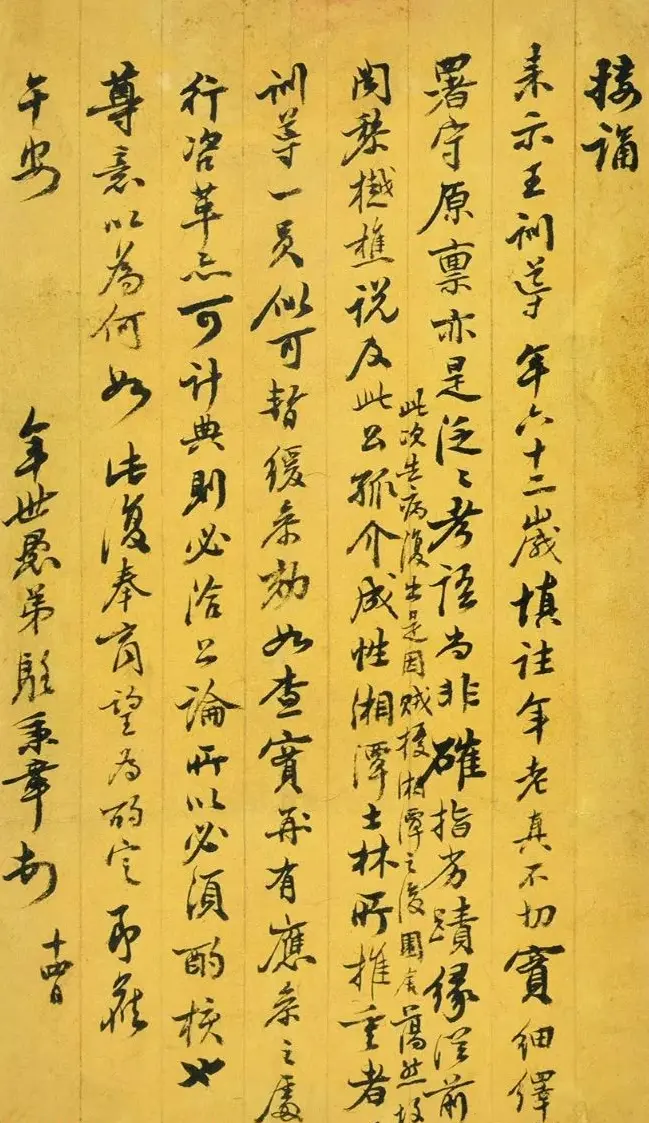 接誦
来示王訓導年六十二歲填註年老真不切實細繹
署守原稟亦是泛々考語尚非確指劣蹟緣從前
此次告病復出是因賊擾湘潭之後團舍蕩然故
閱黎樾樵说及此公孤介成性湘潭士林所推重者
訓導一員似可暫緩条劾如查實再有應条之處
行咨革亦可计典則必洽公論所以必須酌核也
尊意以為何如法復奉商望為酌定即苾
午安
年世愚弟駱秉章书
十四日